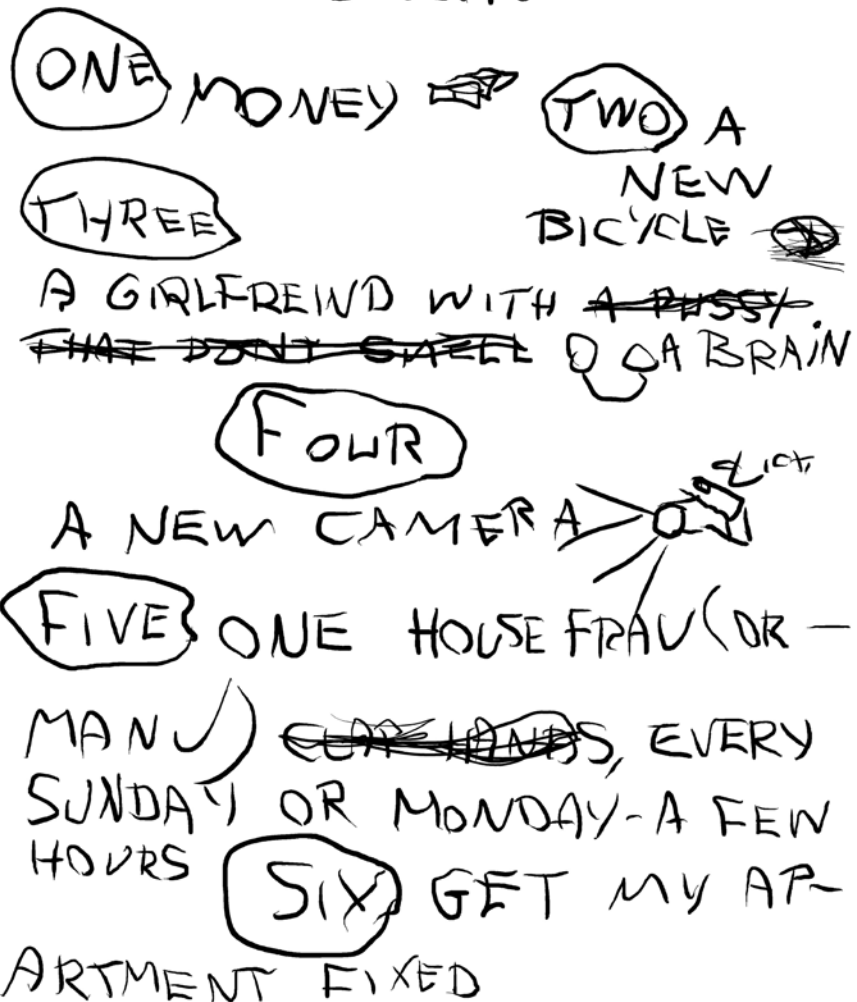 ONE MONEY TWO A
NEW
THREE BICYCLE
A GIRLFREIND WITH A PUSSY
THAT DONT SMELL A BRAIN
FOUR
A NEW CAMERA
FIVE ONE HOUSE FRAU (OR -
MAN) , EVERY
SUNDAY OR MONDAY-A FEW
HOURS SIX GET MY AP-
ARTMENT FIXED